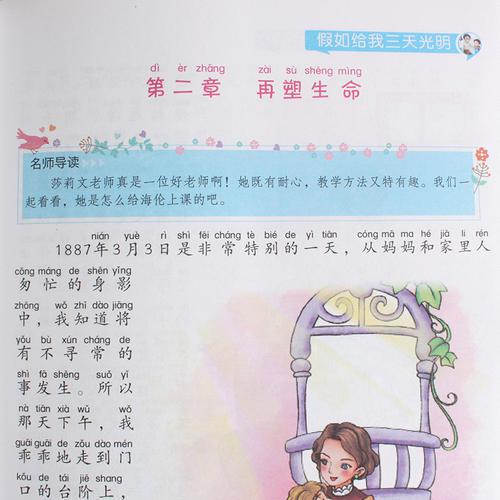 假如给我三天光明
dì èr zhāng zài sù shēng mìng
第二章 再塑生命
名师导读
莎莉文老师真是一位好老师啊！她既有耐心，教学方法又特有趣。我们一
起看看，她是怎么给海伦上课的吧。
nián yuè rì shì fēi cháng tè bié de yì tiān cóng mā ma hé jiā lǐ rén
1887年3月3日是非常特别的一天，从妈妈和家里人
cōng máng de shēn yǐng
匆忙的身影
zhōng wǒ zhī dào jiāng
中，我知道将
yǒu bù xún cháng de
有不寻常的
shì fā shēng suǒ yǐ
事发生。所以
nà tiān xià wǔ wǒ
那天下午，我
guāi guāi de zǒu dào mén
乖乖地走到门
kǒu de tái jiē shang
口的台阶上，